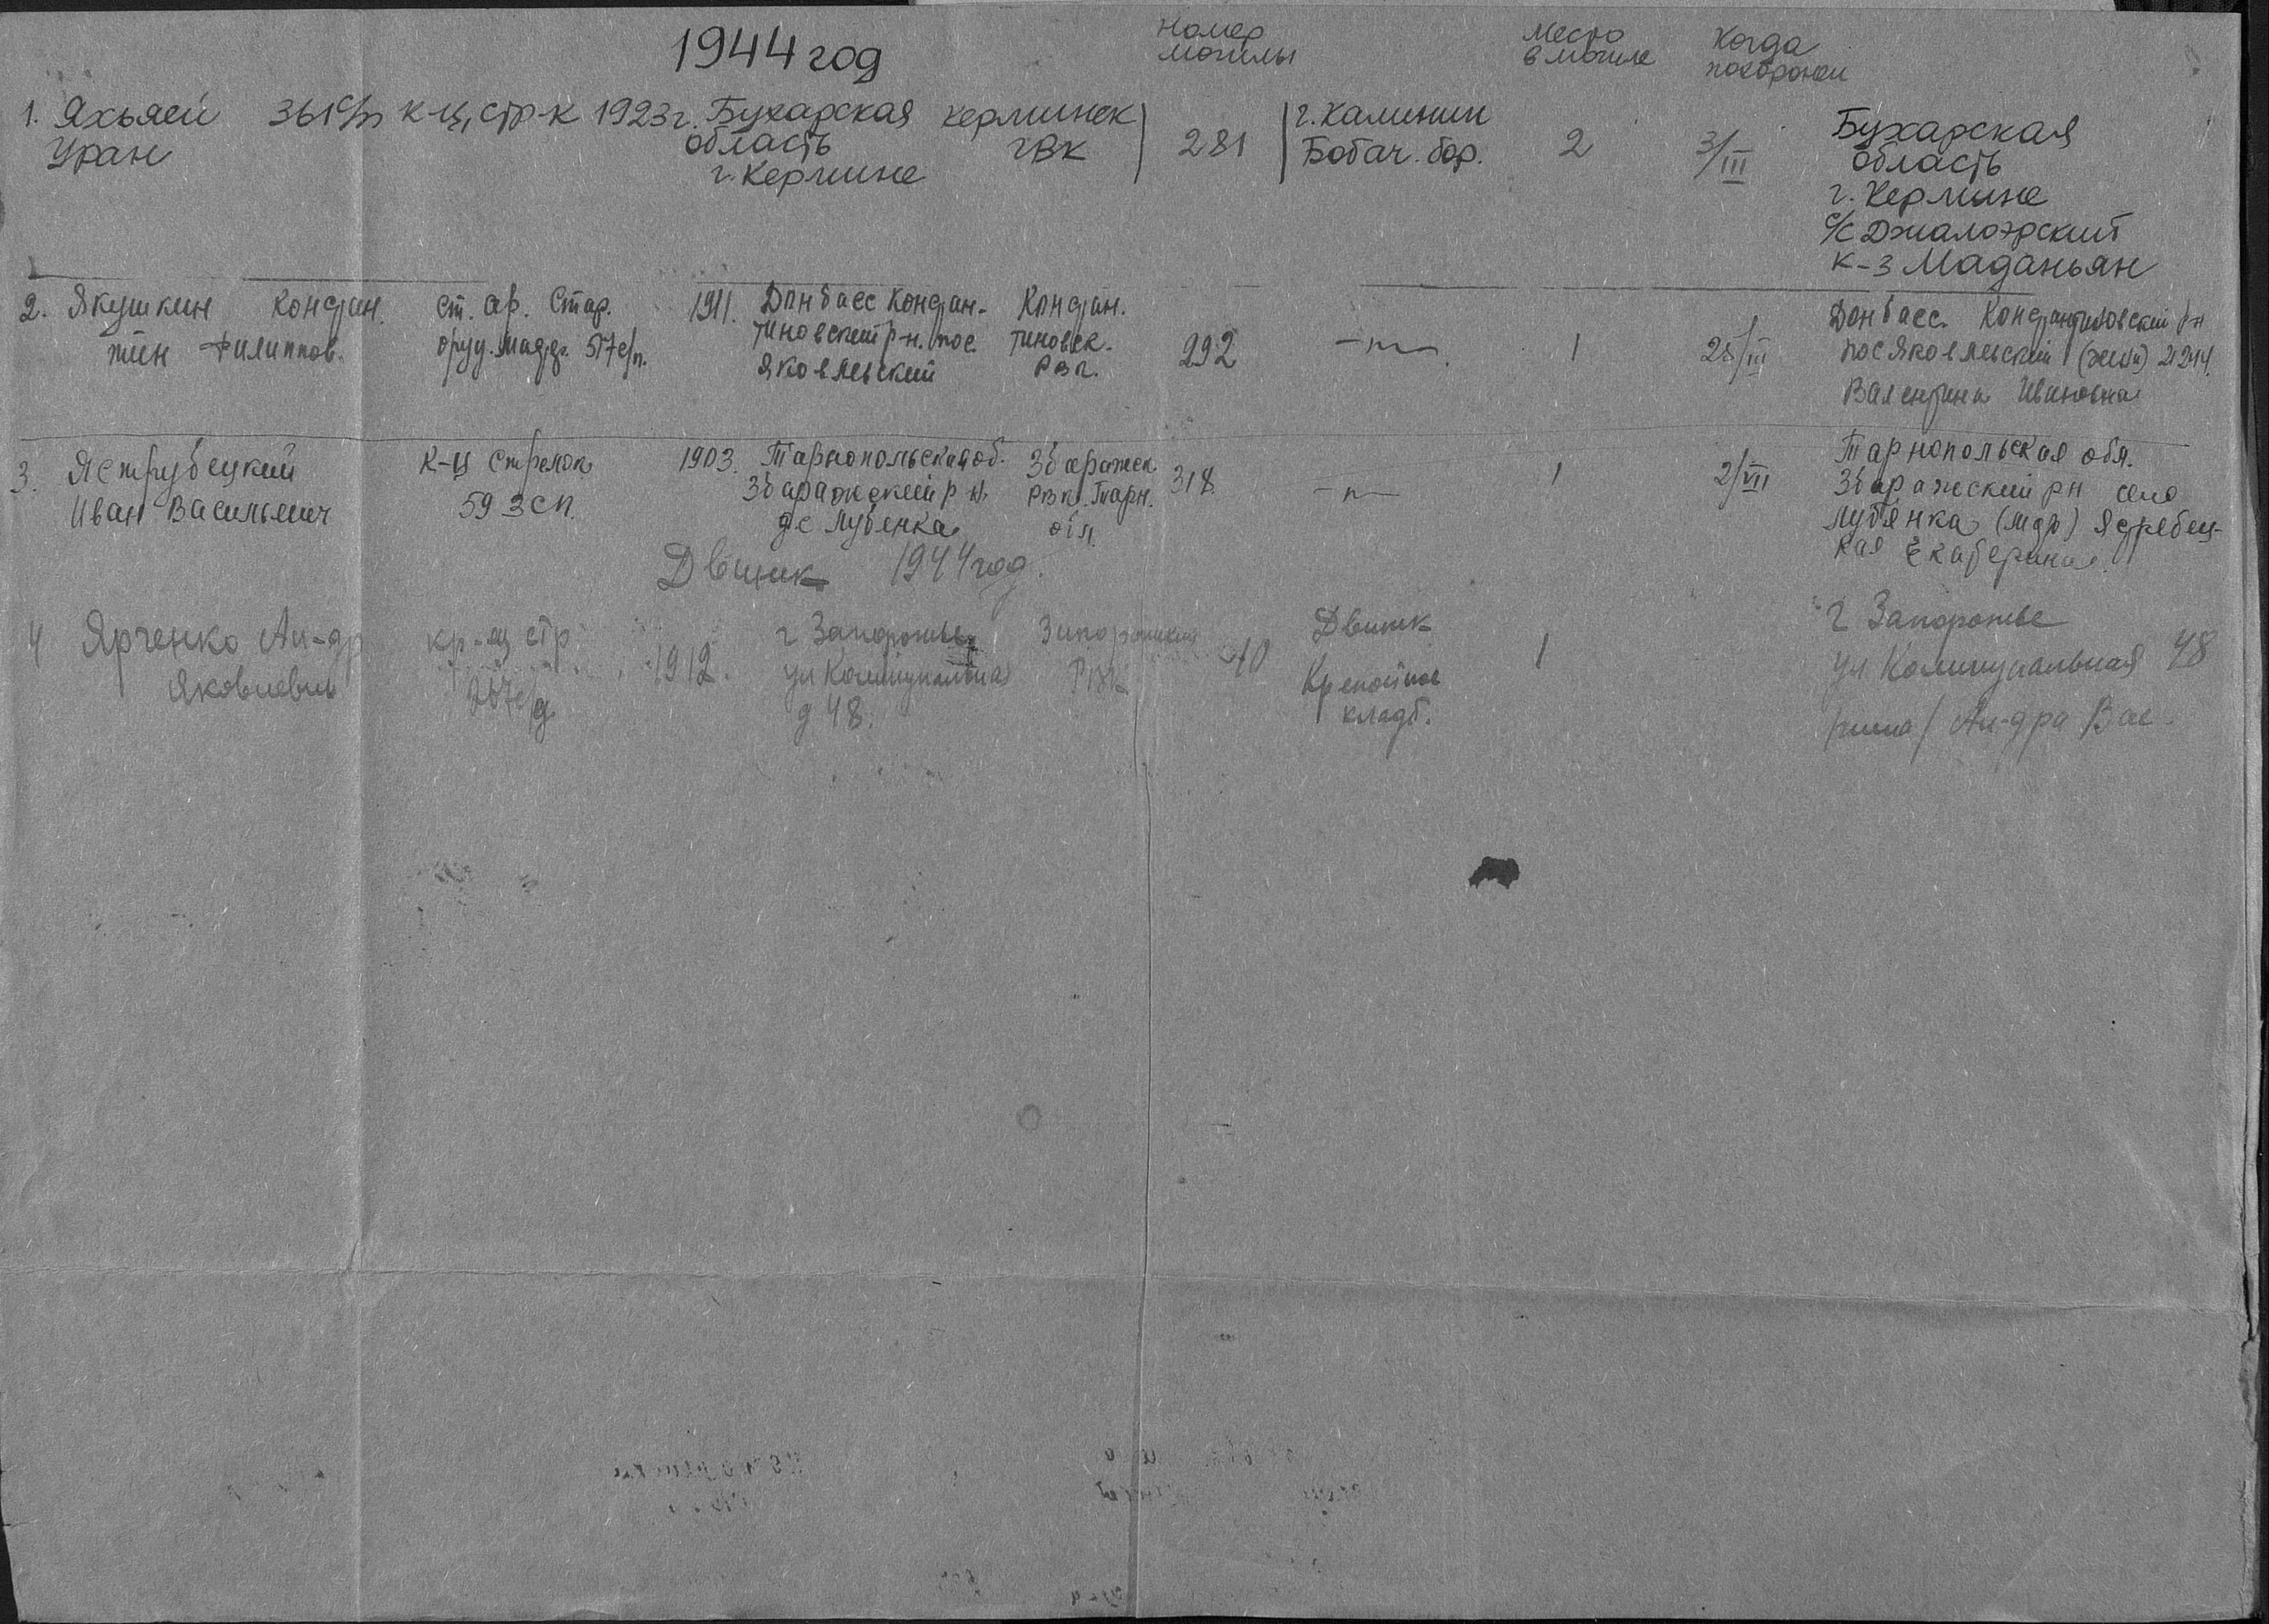 1944 год
Номер могилы
Место в могиле
Когда похоронен
1. Яхьяей 361 с/п к-ц, стр-к 1923 г. Бухарская Керминск 281 г. Калинин 2 3/III Бухарская
Уран область ГВК Бобач. бор. область
г. Кермине г. Кермине
с/с Джалоэрский
к-з Маданьян
2. Якушкин Констан. ст. ар. Стар. 1911. Донбасс Констан- Констан. 292 -"- 1 25/III Донбасс. Константиновский р-н
тин Филиппов. оруд. 517 с/п. тиновский р-н. пос. тиновск. пос Яковлевский
Яковлевский РВК. Валентина Ивановна
3. Яструбецкий к-ц стрелок 1903. Тарнопольская об. Збаражск 318 -"- 1 2/VII Тарнопольская обл.
Иван Васильевич 59 ЗСП. Збаражский р-н. РВК. Тарн. Збаражский рн село
Лубенка обл. Лубянка Ястребец-
кая Екатерина.
Двинск 1944 год.
4 Ярченко Ал-др кр-ц стр 1912. г Запорожье Запорожский 40 Двинск 1 г Запорожье
Яковлевич с/д ул Коммунальная РВК Крепостное ул Коммунальная 48
д 48. кладб. /жена/ Ал-дра Вас.